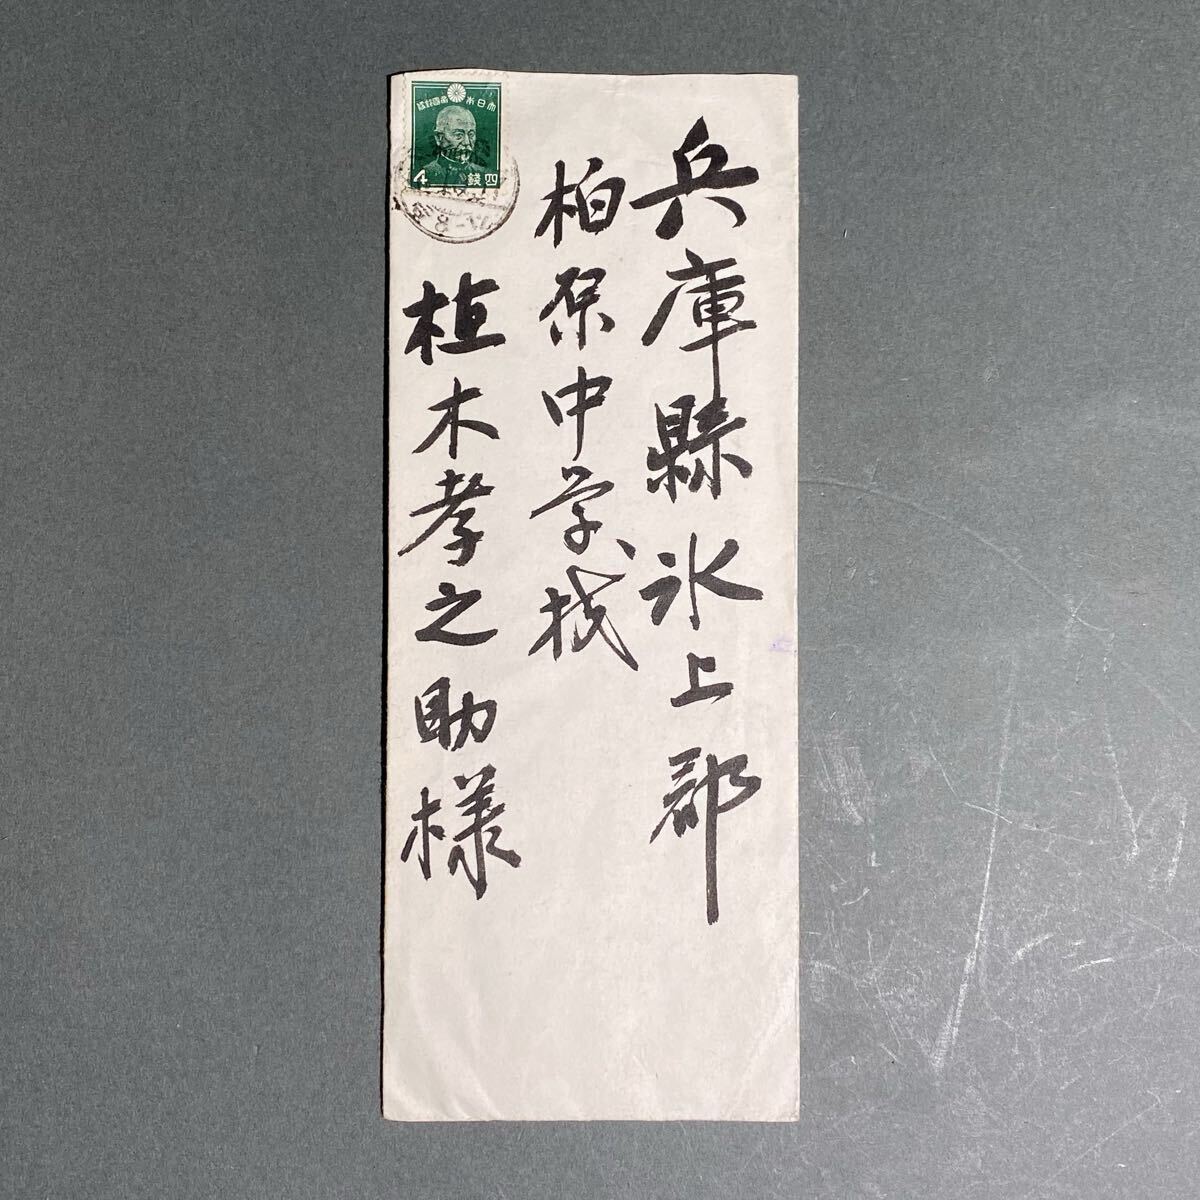 兵庫縣氷上郡
柏原中学校
植木孝之助様
大日本帝國郵便
4 銭四